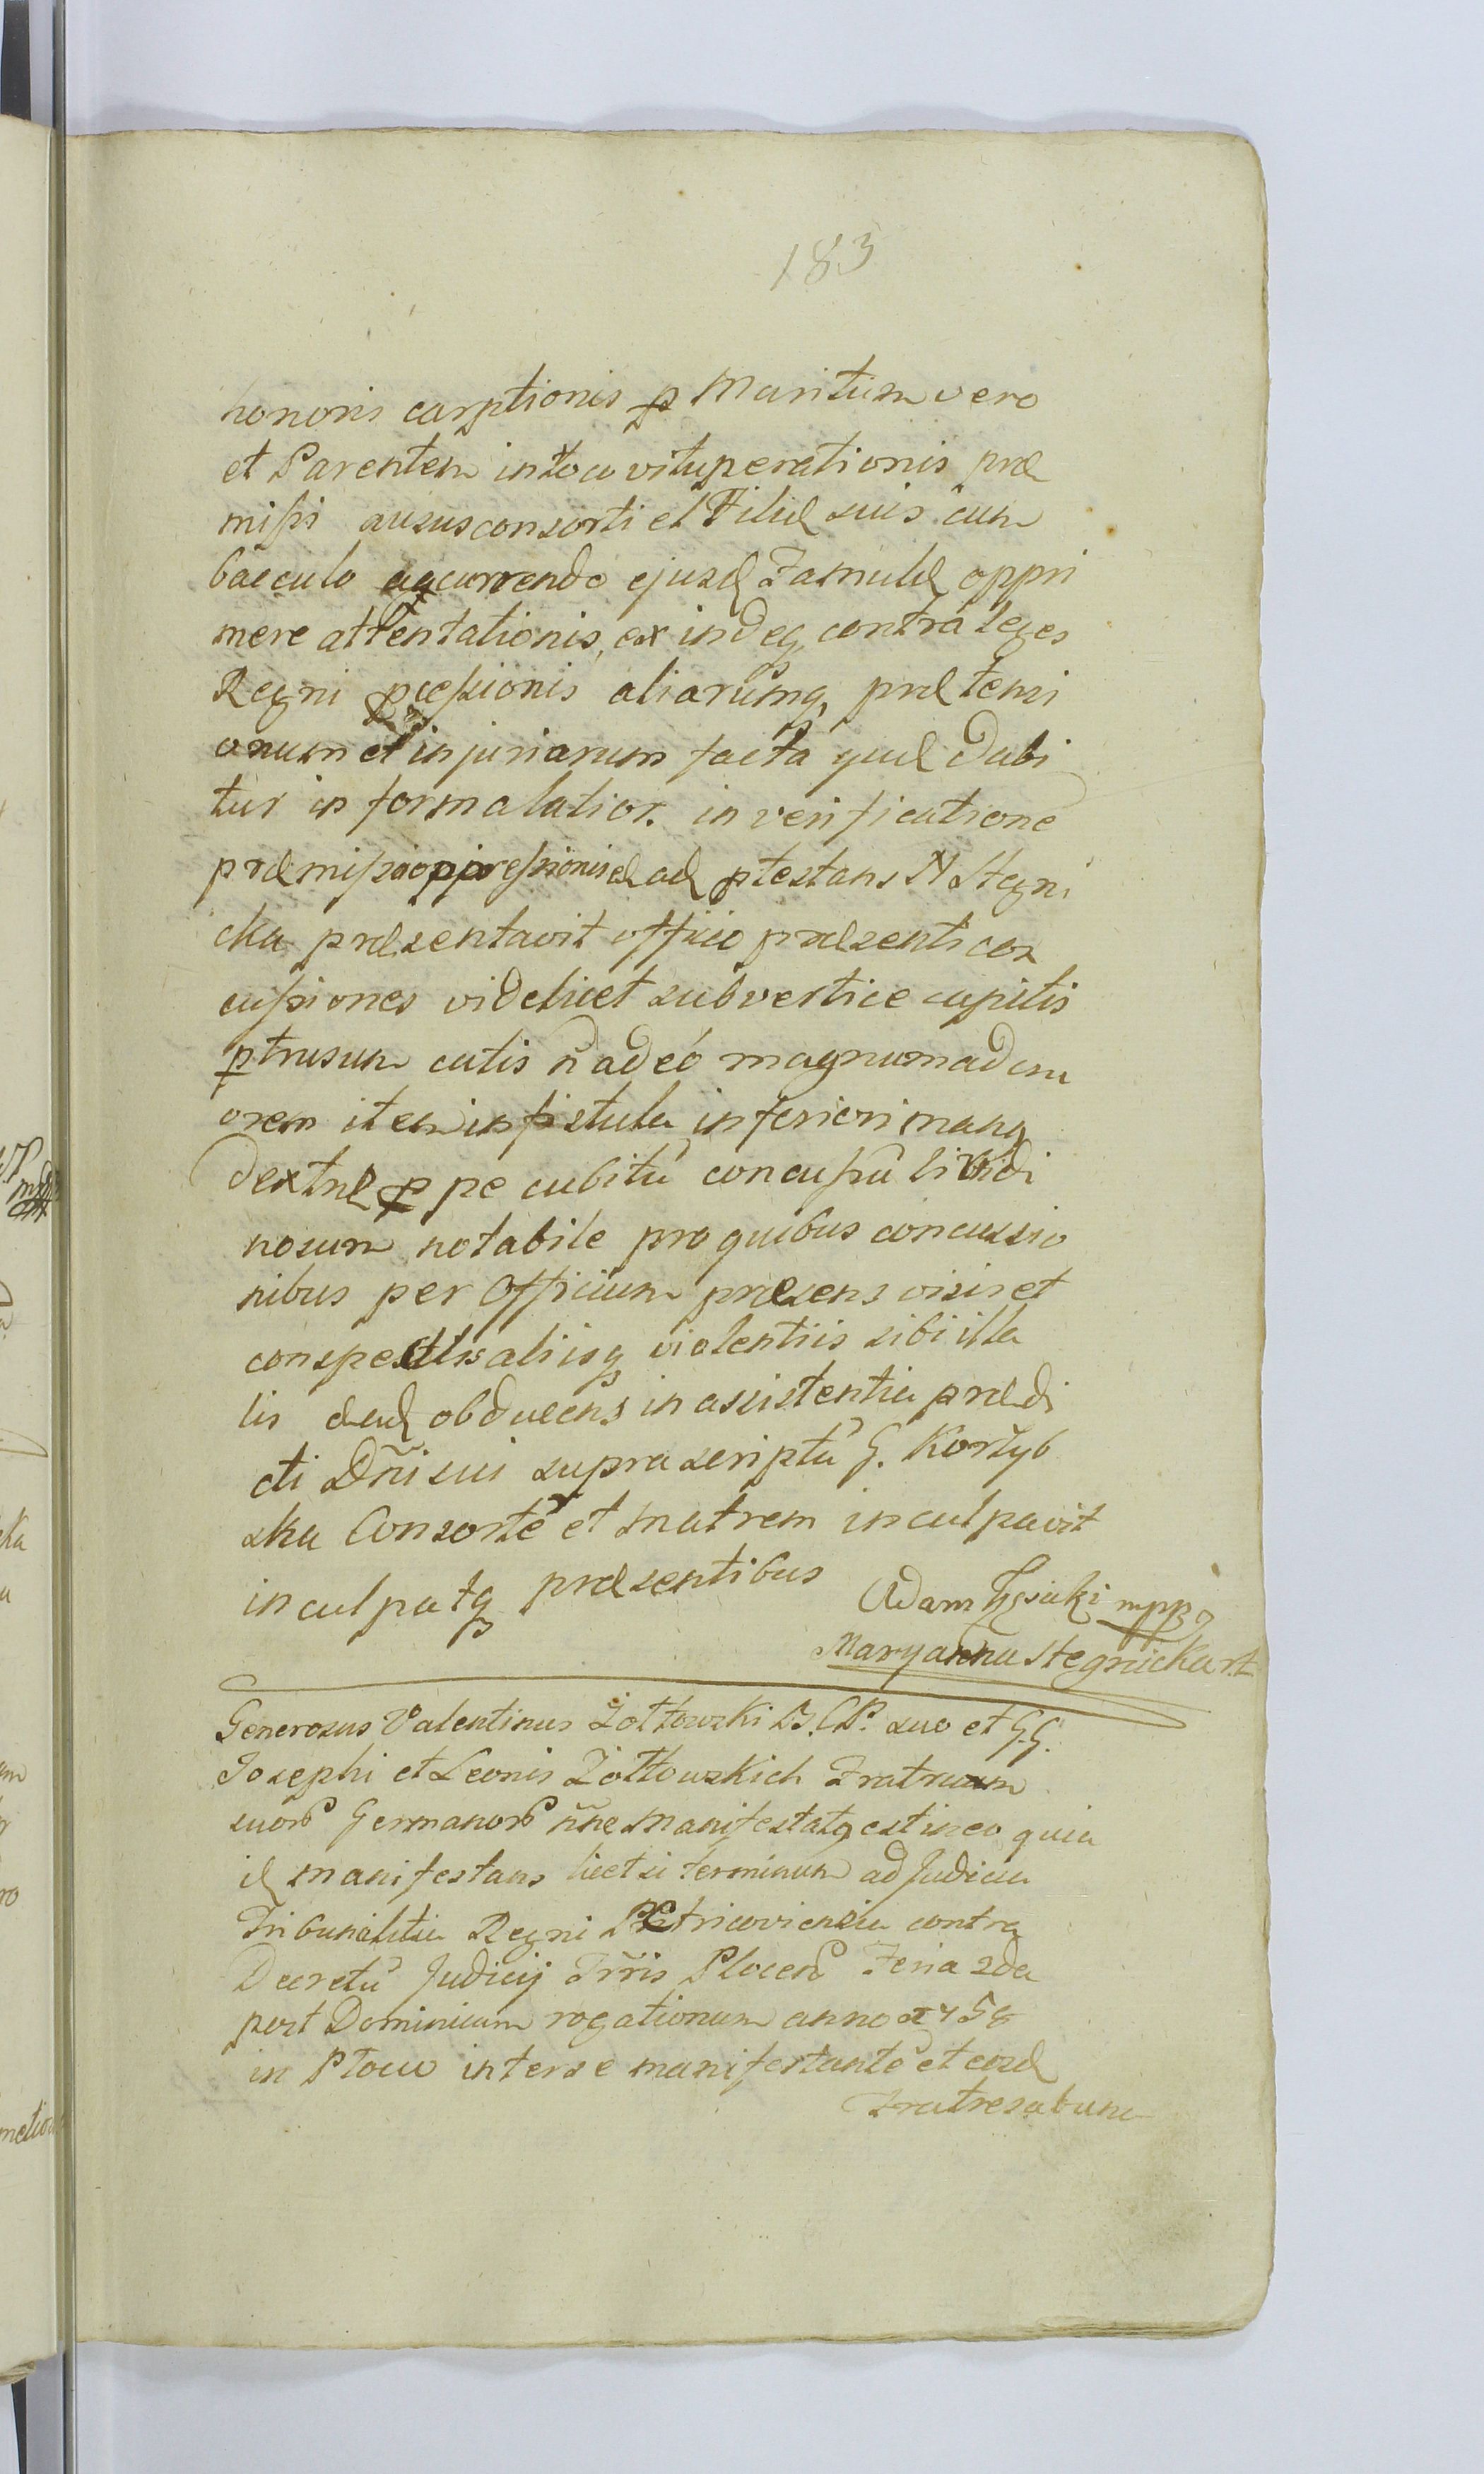 183
honoris carptionis p Maritum vero
et Parentem in loco vituperationis præ
missi ausus consorti et Filiæ suis cum
baculo accurrendo ejusd Famulæ oppri
mere attentationis, ex indeq contra leges
Regni pcessionis aliarumq, præ tensi
onum et injuriarum facta quæ dabi
tur in forma latior. in verificatione
præmissæ oppressionis ead ptestans N Stegni
cka præsentavit officio præsenti con
cussiones videlicet sub vertice capitis
ptrusum cutis ñ adeó magnum ad cru
orem item in fistula inferiori manq
dextræ p pe cubitū concussū lividi
nosum notabile pro quibus concussio
nibus per Officium præsens visis et
conspectis aliisq violentiis sibi illa
tis ead obducens in assistentia prædi
cti Dñi sui supra scriptū G. Korzyb
ska Consortē et Matrem inculpavit
inculpatq præsentibus
Adam mpp
Maryanna Stegnicka
Generosus Valentinus Żółtowski B.C.P. suo et G.G.
Josephi et Leonis Żółtowskich Fratrum
suor Germanor ñne Manifestatq est in eo quia
id manifestans licet si terminum ad Judicia
Tribunalitia Regni Petricoviensia contra
Decretū Judicij Trris Plocen Feria 2da
post Dominicam rogationum anno 1758
in Płocu inter se manifestantē et eosd
Fratres ab una